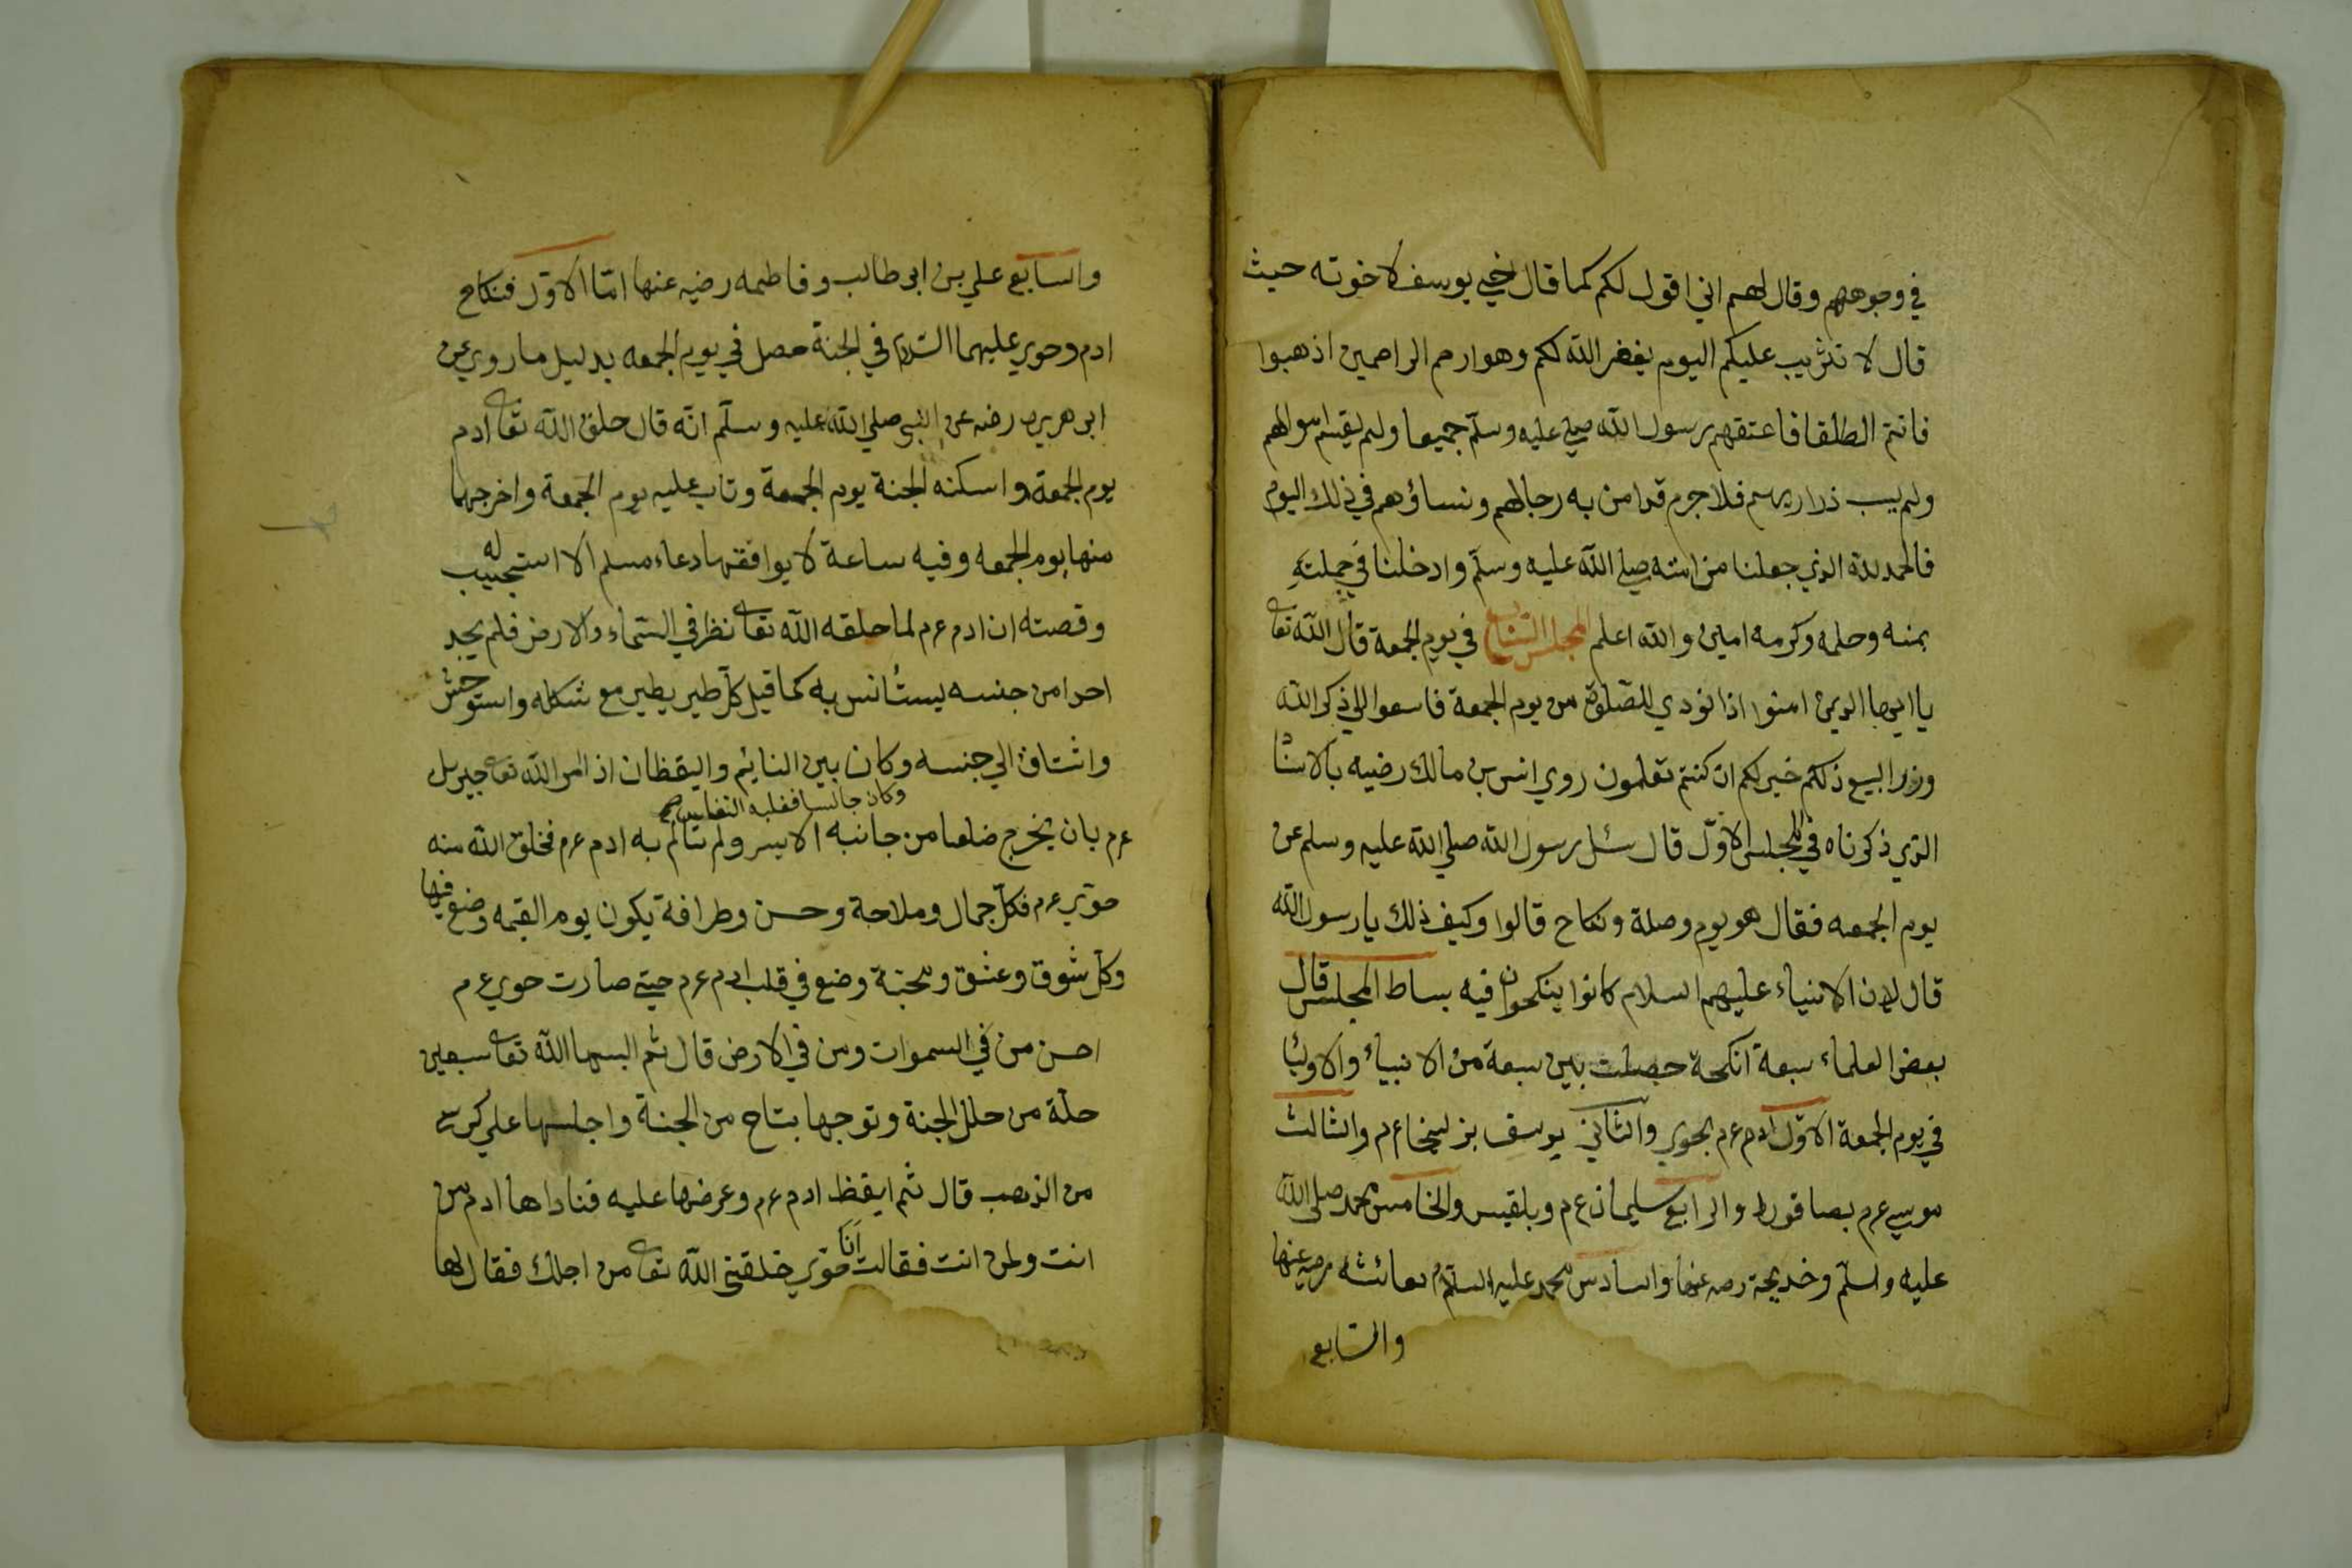 في وجوههم وقال لهم اني اقول لكم كما قال اخي يوسف لاخوته حيث
قال لا تثريب عليكم اليوم يغفر الله لكم وهو ارحم الراحمين اذهبوا
فانتم الطلقا فاعتقهم رسول الله صلي عليه وسلم جميعا ولم يقسم اموالهم
ولم يسب ذراريهم فلا جرم قد امن به رجالهم ونساؤهم في ذلك اليوم
فالحمد لله الذي جعلنا من امته صلي الله عليه وسلم وادخلنا في جملته
بمنه وحلمه وكرمه امين والله اعلم المجلس السابع في يوم الجمعة قال الله تعا
يا ايها الذين امنوا اذا نودي للصلوة من يوم الجمعة فاسعوا الي ذكر الله
وذروا البيع ذلكم خير لكم ان كنتم تعلمون روي انس بن مالك رضيه بالاسناد
الذي ذكرناه في المجلس الاول قال سئل رسول الله صلي الله عليه وسلم عن
يوم الجمعه فقال هو يوم وصلة ونكاح قالوا وكيف ذلك يا رسول الله
قال لان الانبياء عليهم السلام كانوا ينكحون فيه بساط المجلس قال
بعض العلماء سبعة انكحة حصلت بين سبعة من الانبياء والاوليا
في يوم الجمعة الاول ادم عم بحوي والثاني يوسف بزليخا عم والثالث
موسي عم بصافورا والرابع سليمان عم وبلقيس والخامس محمد صلي الله
عليه وسلم وخديجة رضه عنها والسادس محمد عليه السلام بعائشه رضيه عنها
والسابع
والسابع علي بن ابي طالب وفاطمه رضيه عنها امّا الاوّل فنكاح
ادم وحوي عليهما السلام في الجنة حصل في يوم الجمعه بدليل ما روي عن
ابي هريره رضه عن النبي صلي الله عليه وسلم انّه قال خلق الله تعا ادم
يوم الجمعة واسكنه الجنة يوم الجمعة وتاب عليه يوم الجمعة واخرجهما
منها يوم الجمعه وفيه ساعة لا يوافقها دعاء مسلم الا استجيب له
وقصته ان ادم عم لما خلقه الله تعا نظر في السماء والارض فلم يجد
احدا من جنسه يستأنس به كما قيل كل طير يطير مع شكله واستوحش
واشتاق الي جنسه وكان بين النايم واليقظان اذ امر الله تعا جبريل
وكان جالسا فغلبه النعاس صح
عم بان يخرج ضلعا من جانبه الايسر ولم يتالم به ادم عم فخلق الله منه
حوّي عم فكل جمال وملاحة وحسن وظرافة يكون يوم القيمه وضع فيها
وكل شوق وعشق ومحبّة وضع في قلب ادم عم حتي صارت حوي عم
احسن من في السموات ومن في الارض قال ثم البسها الله تعا سبعين
حلّة من حلل الجنة وتوجها بتاج من الجنة واجلسها علي كرسي
من الذهب قال ثم ايقظ ادم عم وعرضها عليه فناداها ادم من
انت ولمن انت فقالت انا حوّي خلقني الله تعا من اجلك فقال لها